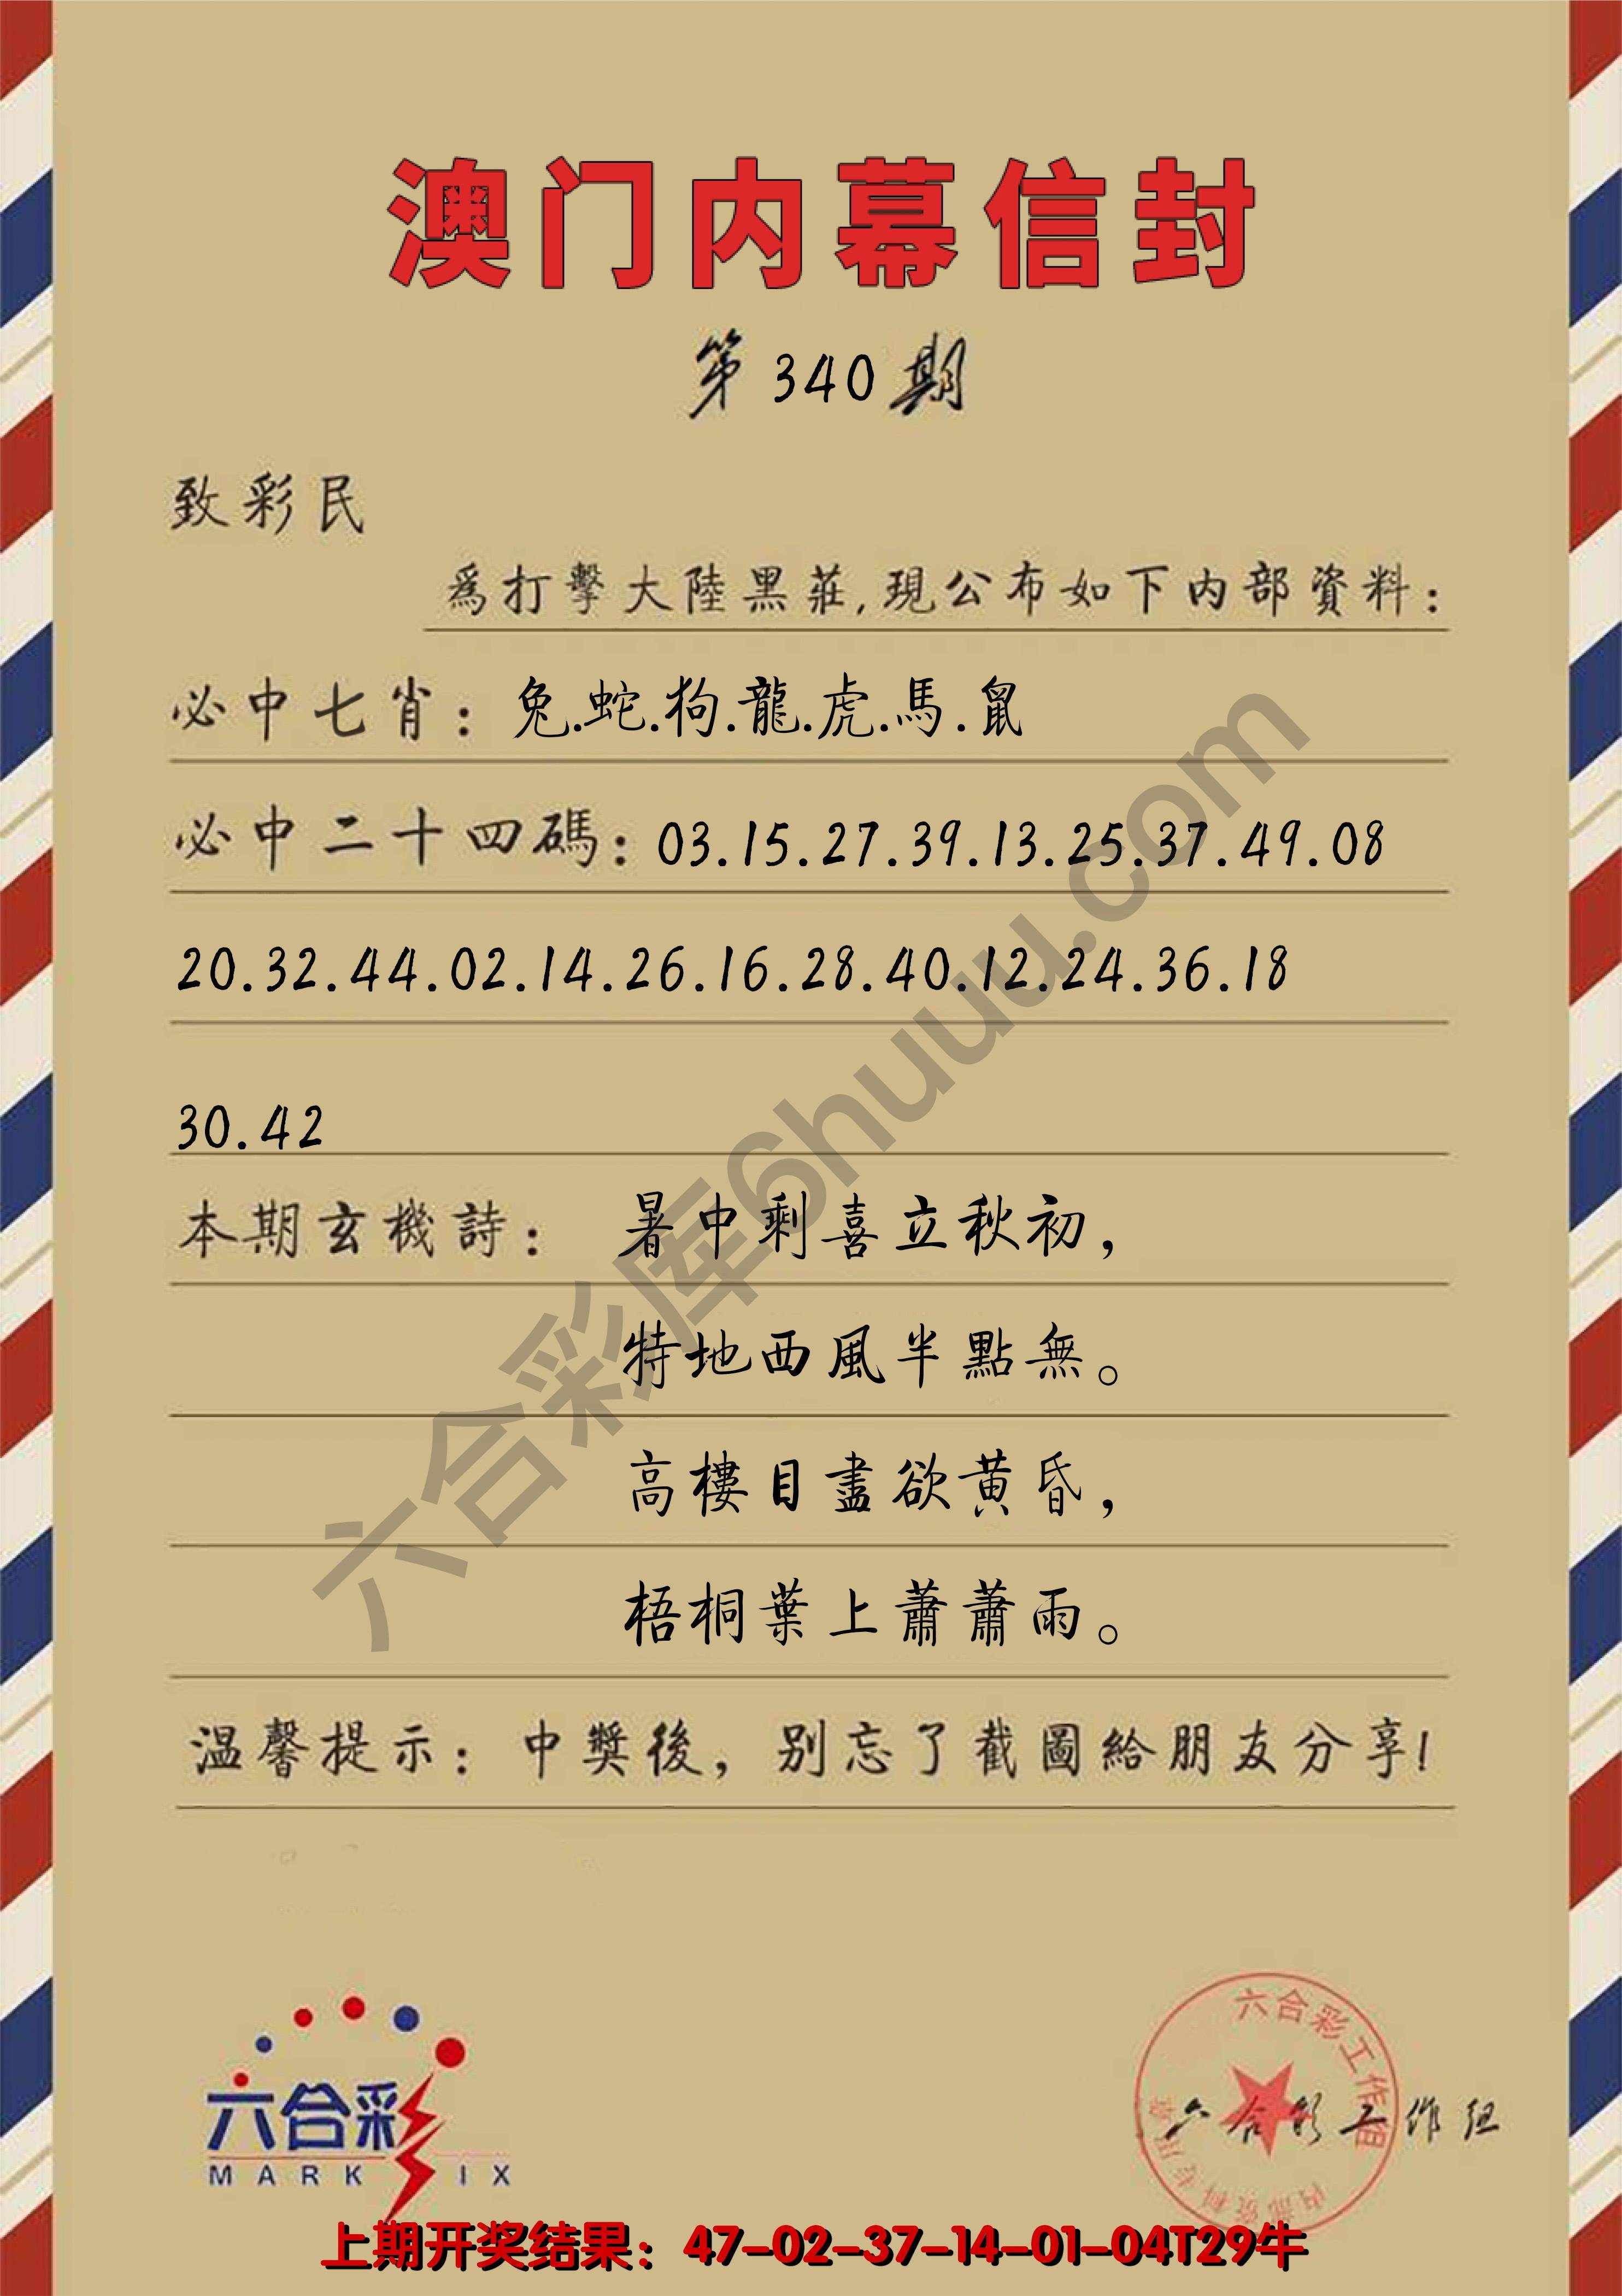 澳门内幕信封
第340期
致彩民
爲打擊大陸黑莊,現公布如下内部資料:
必中七肖: 兔.蛇.狗.龍.虎.馬.鼠
必中二十四碼: 03.15.27.39.13.25.37.49.08
20.32.44.02.14.26.16.28.40.12.24.36.18
30.42
本期玄機詩: 暑中剩喜立秋初,
特地西風半點無。
高樓目盡欲黄昏,
梧桐葉上蕭蕭雨。
温馨提示: 中獎後, 别忘了截圖給朋友分享!
六合彩库6huuu.com
六合彩
MARK IX
六合彩工作组
内部资料专用章
六合彩工作组
上期开奖结果: 47-02-37-14-01-04T29牛